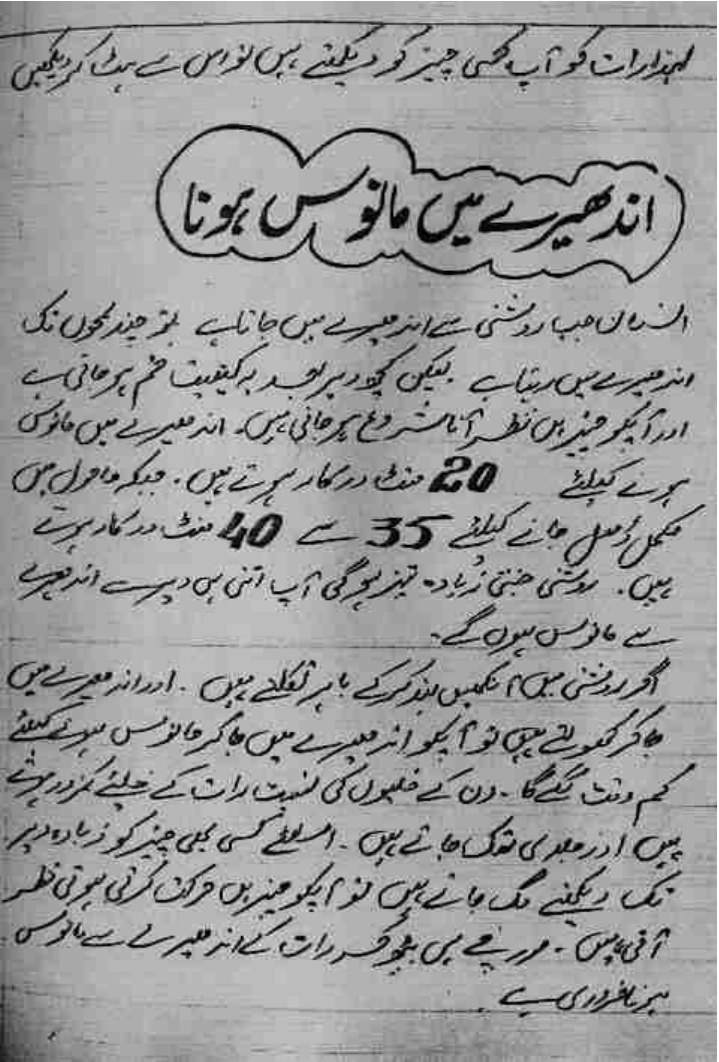 لہذا رات کو آپ کسی چیز کو دیکھتے ہیں تو اس سے ہٹ کر دیکھیں
اندھیرے میں مانوس ہونا
انسان جب روشنی سے اندھیرے میں جاتا ہے تو چند لمحوں تک
اندھیرے میں رہتا ہے ۔ لیکن کچھ دیر بعد یہ کیفیت ختم ہو جاتی ہے
اور آپکو چیزیں نظر آنا شروع ہو جاتی ہیں۔ اندھیرے میں مانوس
ہونے کیلئے 20 منٹ درکار ہوتے ہیں ۔ جبکہ ماحول میں
مکمل ڈھل جانے کیلئے 35 سے 40 منٹ درکار ہوتے
ہیں ۔ روشنی جتنی زیادہ تیز ہوگی آپ اتنی ہی دیر سے اندھیرے
سے مانوس ہوں گے ۔
اگر روشنی میں آنکھیں بند کر کے باہر نکلتے ہیں ۔ اور اندھیرے میں
جا کر کھولتے ہیں تو آپکو اندھیرے میں جا کر مانوس ہونے کیلئے
کم وقت لگے گا ۔ دن کے خلیوں کی نسبت رات کے خلئے کمزور ہوتے
ہیں اور جلدی تھک جاتے ہیں ۔ اسلئے کسی بھی چیز کو زیادہ دیر
تک دیکھنے لگ جاتے ہیں تو آپکو چیزیں حرکت کرتی ہوئی نظر
آتی ہیں ۔ رات کے اندھیرے سے مانوس
ہونا ضروری ہے